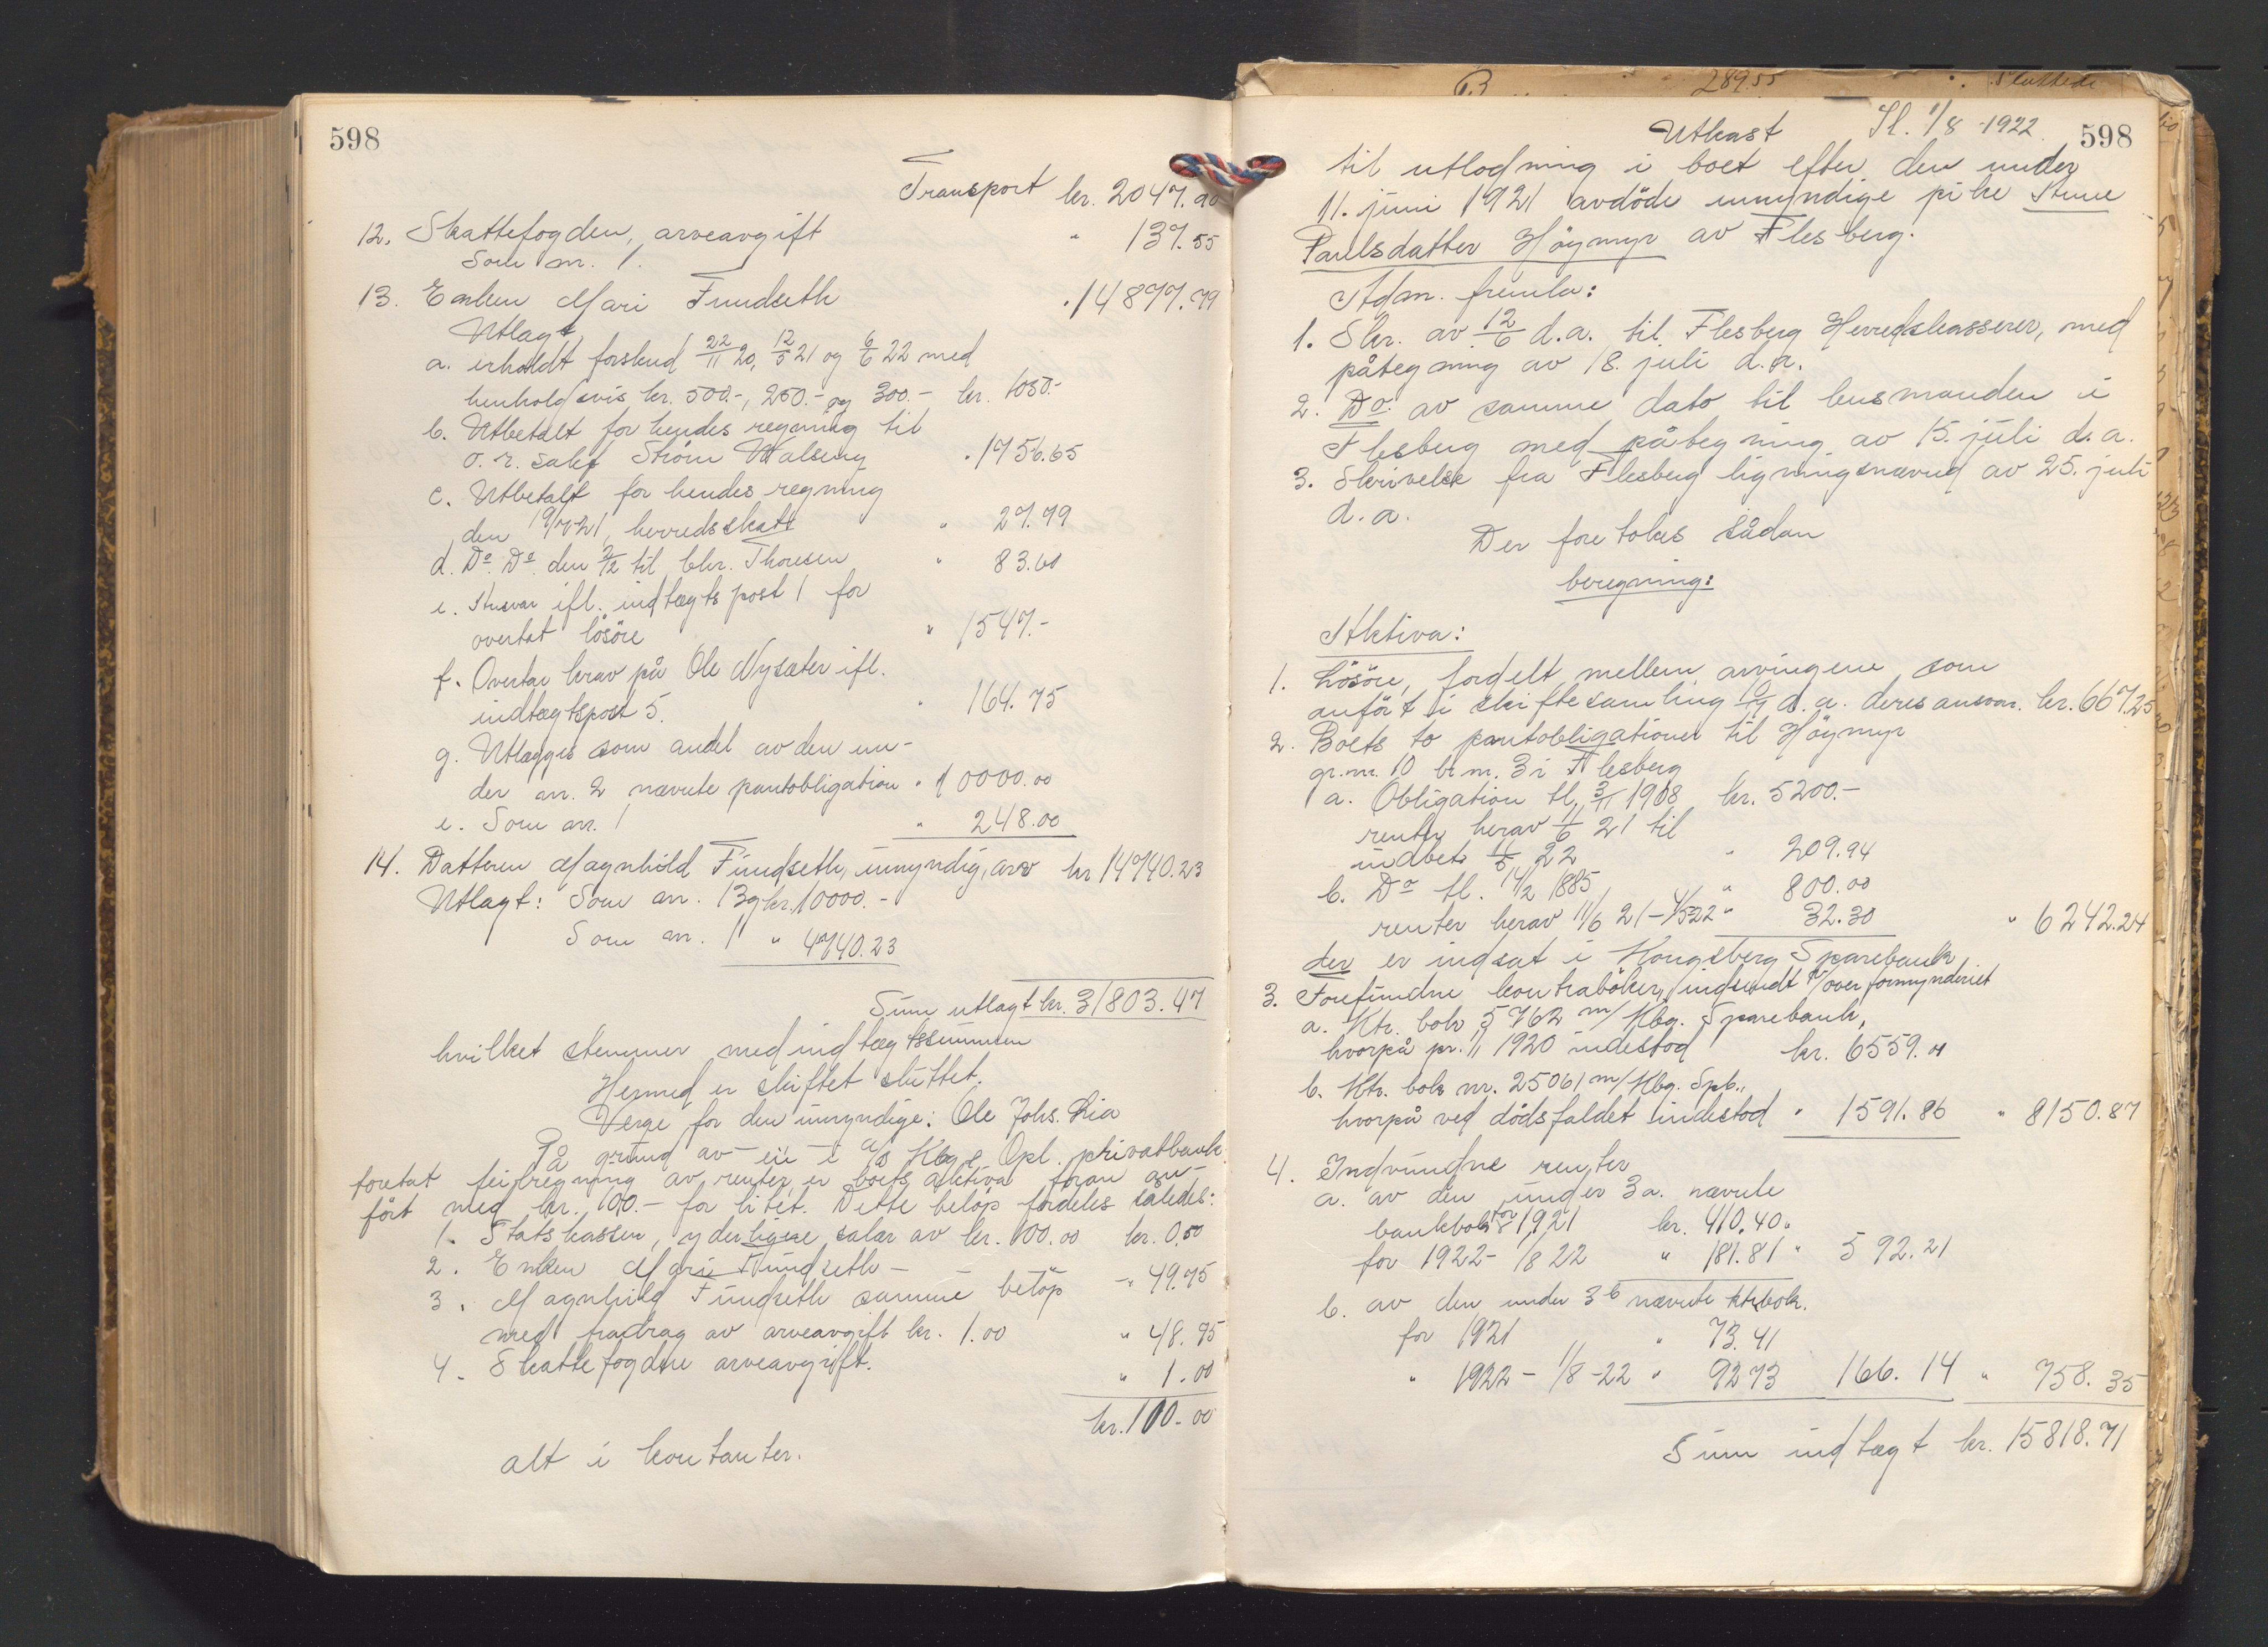 598
Transport kr. 2047.90
12. Skattefogden, arveavgift " 137.55
Som nr. 1.
13. Enken Mari Fundseth " 14877.79
Utlagt
a. erholdt forskud 22/11 20, 12/5 21 og 6/6 22 med
henholdsvis kr. 500.-, 250.- og 300.- kr. 1050.-
b. Utbetalt for hendes regning til
o.r. sakf Ström Walseng " 1756.65
c. Utbetalt for hendes regning
den 9/7 21, herredsskatt " 27.79
d. Do. Do. den 2/12 til Chr. Thoresen " 83.60
e. Ansvar ifl. indtægtspost 1 for
overtat lösöre " 1547.-
f. Overtar krav på Ole Nysæter ifl.
indtægtspost 5. " 164.75
g. Utlægges som andel av den un-
der nr. 2 nævnte pantobligation " 10000.00
e. Som nr. 1 " 248.00
14. Datteren Magnhild Fundseth, umyndig, arv kr 14740.23
Utlagt: Som nr. 13g kr. 10000.-
Som nr. 1 " 4740.23
Sum utlagt kr. 31803.47
hvilket stemmer med indtægtssummen
Hermed er skiftet sluttet.
Verge for den umyndige: Ole Johs. Lia
På grund av en i a/s Kbg & Opl. privatbank
foretat feilregning av renter er boets aktiva foran an-
fört med kr. 100.- for litet. Dette belöp fordeles således:
1. Statskassen, yderligere salær av kr. 100.00 kr. 0.50
2. Enken Mari Fundseth - " 49.75
3. Magnhild Fundseth samme belöp
med fradrag av arveavgift kr. 1.00 " 48.75
4. Skattefogden arveavgift. " 1.00
kr. 100.00
alt i kontanter.
289.55
Sluttede
Utkast Sl. 1/8 - 1922. 598
til utlodning i boet efter den under
11. juni 1921 avdöde umyndige pike Anne
Paulsdatter Höymyr av Flesberg.
Adm. fremla:
1. Skr. av 12/6 d.a. til Flesberg Herredskasserer, med
påtegning av 18. juli d.a.
2. Do. av samme dato til lensmanden i
Flesberg med påtegning av 15. juli d.a.
3. Skrivelse fra Flesberg ligningsnævnd av 25. juli
d.a.
Der foretokes sådan
beregning:
Aktiva:
1. Lösöre, fordelt mellem arvingene som
anfört i skiftesamling 10/7 d.a. deres ansvar. kr. 667.25
2. Boets to pantobligationer til Höymyr
gr.nr. 10 br.nr. 3 i Flesberg
a. Obligation tl. 3/11 1908 kr. 5200.-
renter herav 11/6 21 til
indbet. 11/5 22 " 209.94
b. Do tl. 14/2 1885 " 800.00
renter herav 11/6 21 - 4/5 22 " 32.30 " 6242.24
der er indsat i Kongsberg Sparebank
3. Forefundne kontraböker, indsendt t/overformynderiet
a. Ktr. bok 5762 m/Kbg. Sparebank,
hvorpå pr. 1/1 1920 indestod kr. 6559.01
b. Ktr. bok nr. 25061 m/Kbg. Spb.,
hvorpå ved dödsfaldet indestod " 1591.86 " 8150.87
4. Indvundne renter
a. av den under 3a. nævnte
bankbok for 1921 kr. 410.40.
for 1922 - 1/8 22 " 181.81 " 592.21
b. av den under 3b nævnte ktrbok.
for 1921 " 73.41
" 1922 - 1/8 - 22 " 92.73 166.14 " 758.35
Sum indtægt kr. 15818.71